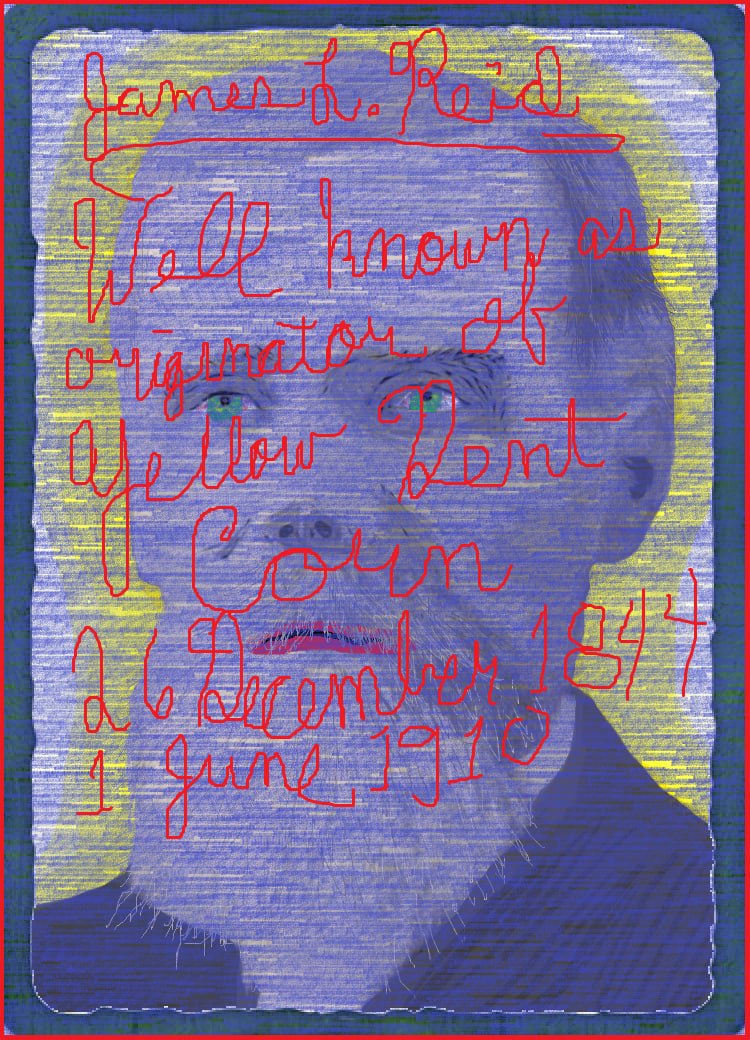 James L. Reid
Well known as
originator of
Yellow Dent
Corn
26 December 1844
1 June 1910